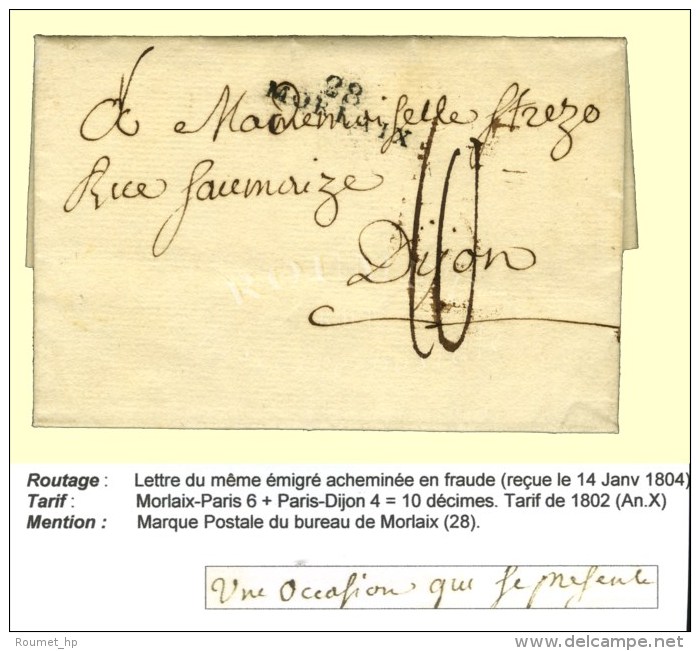 28
MORLAIX
A Mademoiselle Strezo
Rue Saumaize
Dijon
10
Routage : Lettre du même émigré acheminée en fraude (reçue le 14 Janv 1804)
Tarif : Morlaix-Paris 6 + Paris-Dijon 4 = 10 décimes. Tarif de 1802 (An.X)
Mention : Marque Postale du bureau de Morlaix (28).
Une Occasion qui se presente
Roumet_hp
© delcampe.net